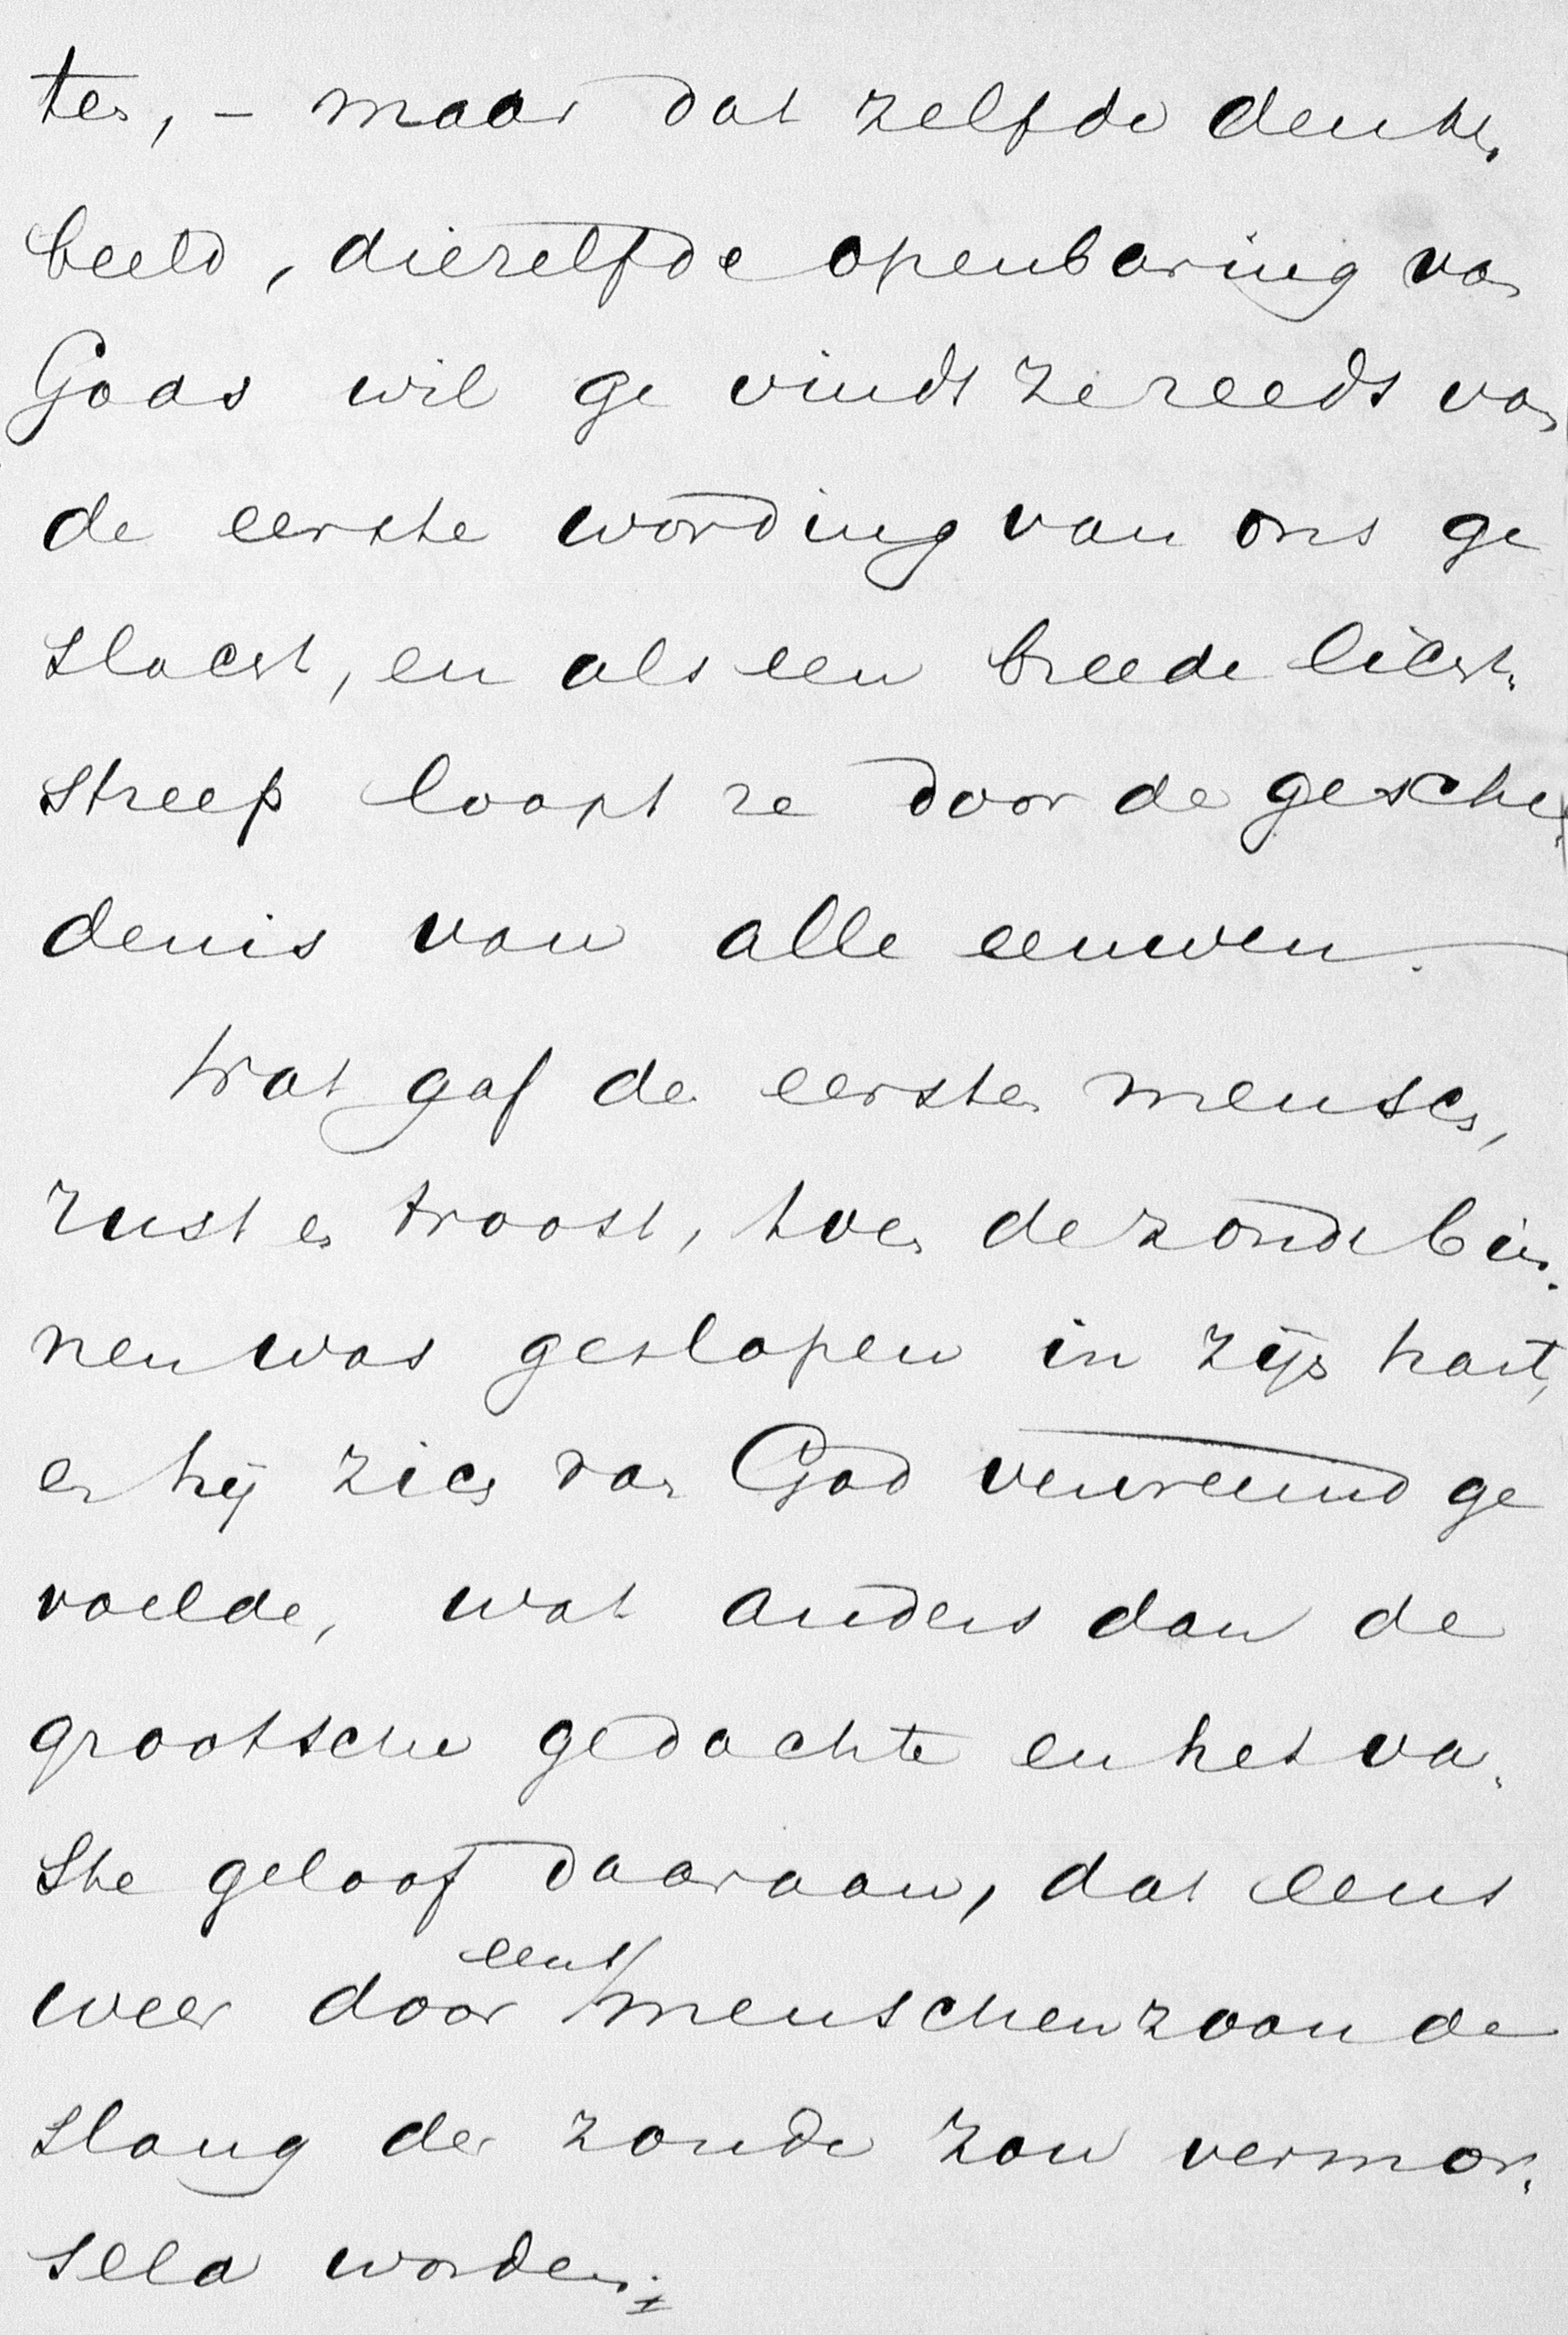 ten, – maar dat zelfde denk-
beeld, diezelfde openbaring van
Gods wil ge vindt ze reeds van
de eerste wording van ons ge
slacht, en als een breede licht-
streep loopt ze door de geschie-
denis van alle eeuwen.
Wat gaf de eersten mensch,
rust en troost, toen de zonde bin-
nen was geslopen in zijn hart,
en hij zich van God vervreemd ge
voelde, wat anders dan de
grootsche gedachte en het va-
ste geloof daaraan, dat eens
weer door eens menschenzoon de
slang der zonde zou vermor-
seld worden.